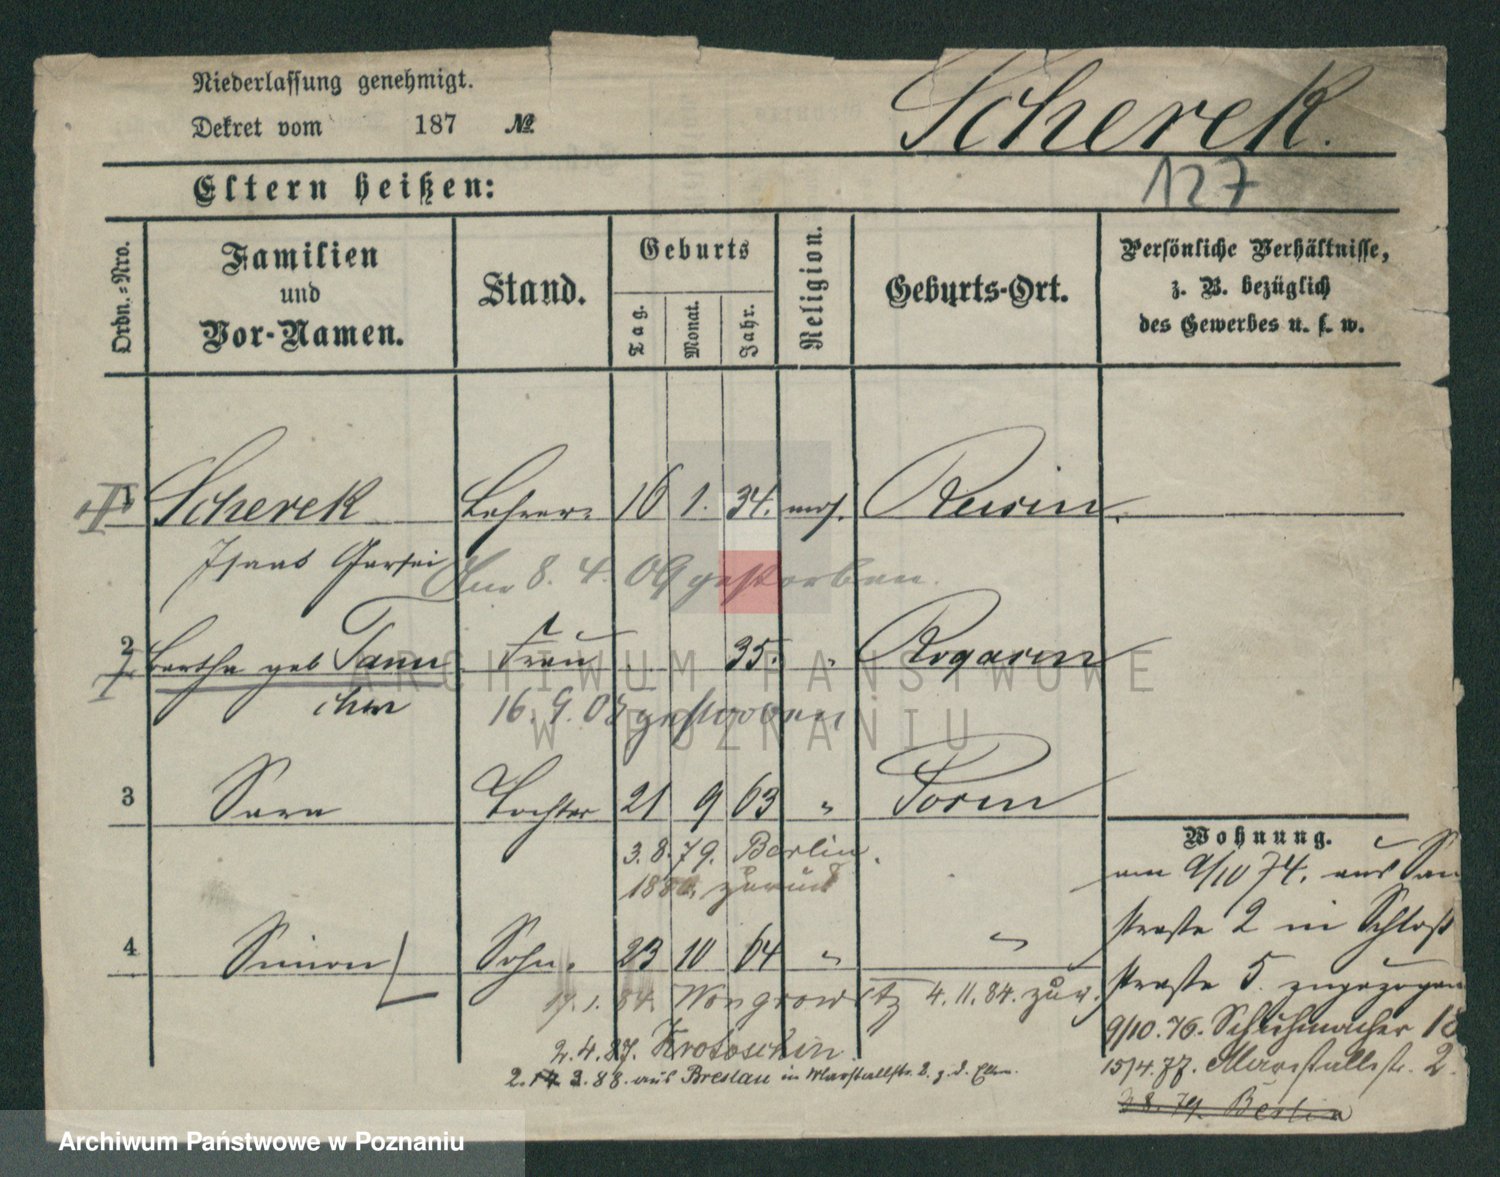 Niederlassung genehmigt.
Dekret vom 187 №
Scherek.
127
Eltern heißen:
Ordn.-Nro.
Familien
und
Vor-Namen.
Stand.
Geburts
Tag.
Monat.
Jahr.
Religion.
Geburts-Ort.
Persönliche Verhältnisse,
z. B. bezüglich
des Gewerbes u. s. w.
1 Scherek Lehrer 16 1. 34. mos.
Isaac
Am 8. 4. 09 gestorben.
2 Bertha geb Tann Frau 35. " Rogasen
cher
16. 9. 07 gestorben
3 Sara Tochter 21 9 63 " Posen
3. 8. 79. Berlin.
zurück
4 Simon Sohn. 23 10 64 " "
17. 1. 84. Wongrowitz 4. 11. 84. zur.
2. 4. 87. Krotoschin.
88. aus Breslau in Marstallstr. 2. z. d. Eltern.
Wohnung.
am 9/10 74. aus
straße 2 in Schloß
straße 5. zugezogen
9/10. 76. Schuhmacher 18
15/4. 77. Marstallstr. 2.
8. 79. Berlin
ARCHIWUM PAŃSTWOWE
W POZNANIU
Archiwum Państwowe w Poznaniu